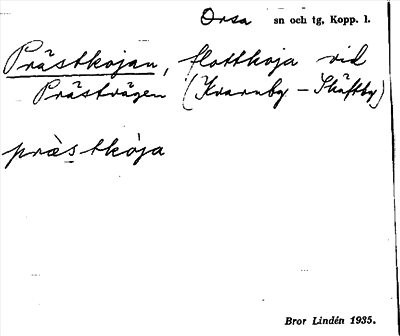 Orsa sn och tg, Kopp. l.
Prästkojan, flottkoja vid
Prästvägen (Kvarnby - Skäftby)
prὲstkòja
Bror Lindén 1935.